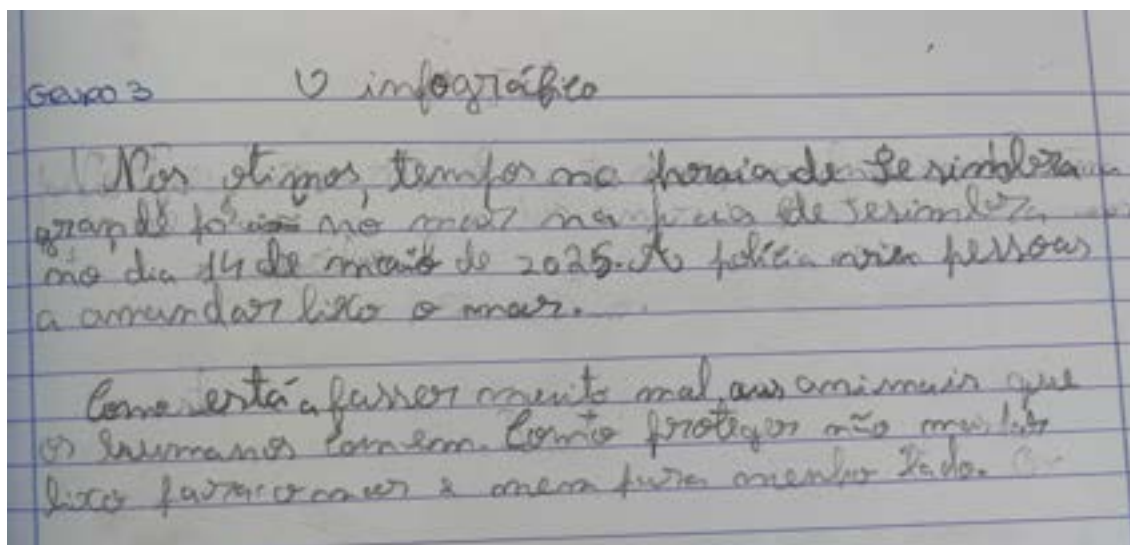 Grupo 3 O infográfico
Nos otimos tempos na praia de Sesimbra
grande no mar na praia de sesimbra
no dia 14 de maio de 2025. A polícia pessoas
a amandar lixo o mar.
Como está a fasser muito mal aus animais que
os humanos comem. Como proteger não mandar
lixo para o mar e nem para lado.